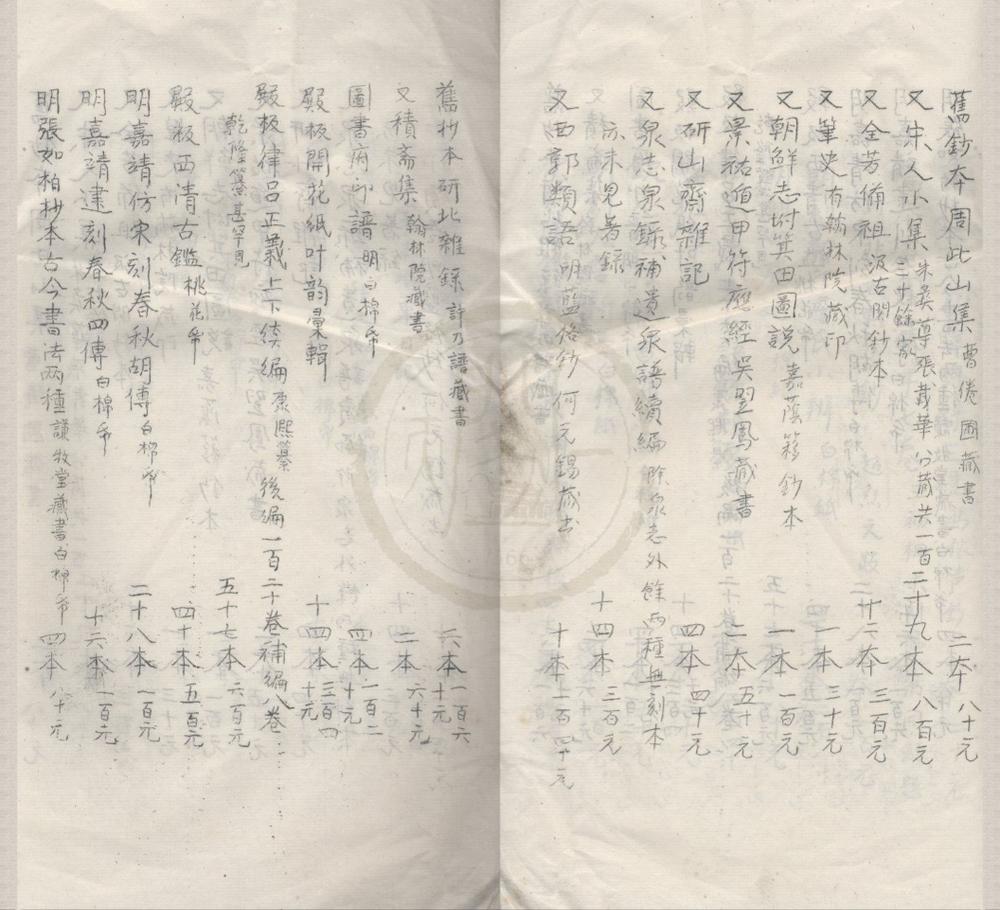 舊鈔本周此山集 曹倦圃藏書 二本 八十元
又宋人小集 三十餘家 朱彝尊張載華公藏共一百二十九本 八百元
又全芳備祖 汲古閣鈔本 廿二本 三百元
又筆史 有翰林院藏印 一本 三十元
又朝鮮志坿箕田圖說 嘉蔭簃鈔本 一本 一百元
又景祐遁甲符應經 吳翌鳳藏書 二本 五十元
又研山齋雜記 四本 四十元
又泉志泉錄補遺泉譜續編 除泉志外餘兩種無刻本
亦未見著錄 十四本 三百元
又西郭類語 明藍格鈔 何元錫藏書 十本 一百四十元
舊抄本研北雜錄 許乃譜藏書 六本 一百六十元
又積斋集 翰林院藏書 二本 六十元
圖書府印譜 明白棉帋 四本 一百二十元
殿板開花紙叶韵彙輯 十四本 三百四十元
殿板律呂正義上下續編康熙纂 後編一百二十卷補編八卷
乾隆纂甚罕見 五十七本 六百元
殿板西清古鑑 桃花帋 四十本 五百元
明嘉靖仿宋刻春秋胡傳 白棉帋 二十八本 一百元
明嘉靖建刻春秋四傳 白棉帋 十六本 一百元
明張如柏抄本古今書法两種 謙牧堂藏書白棉帋 四本 八十元